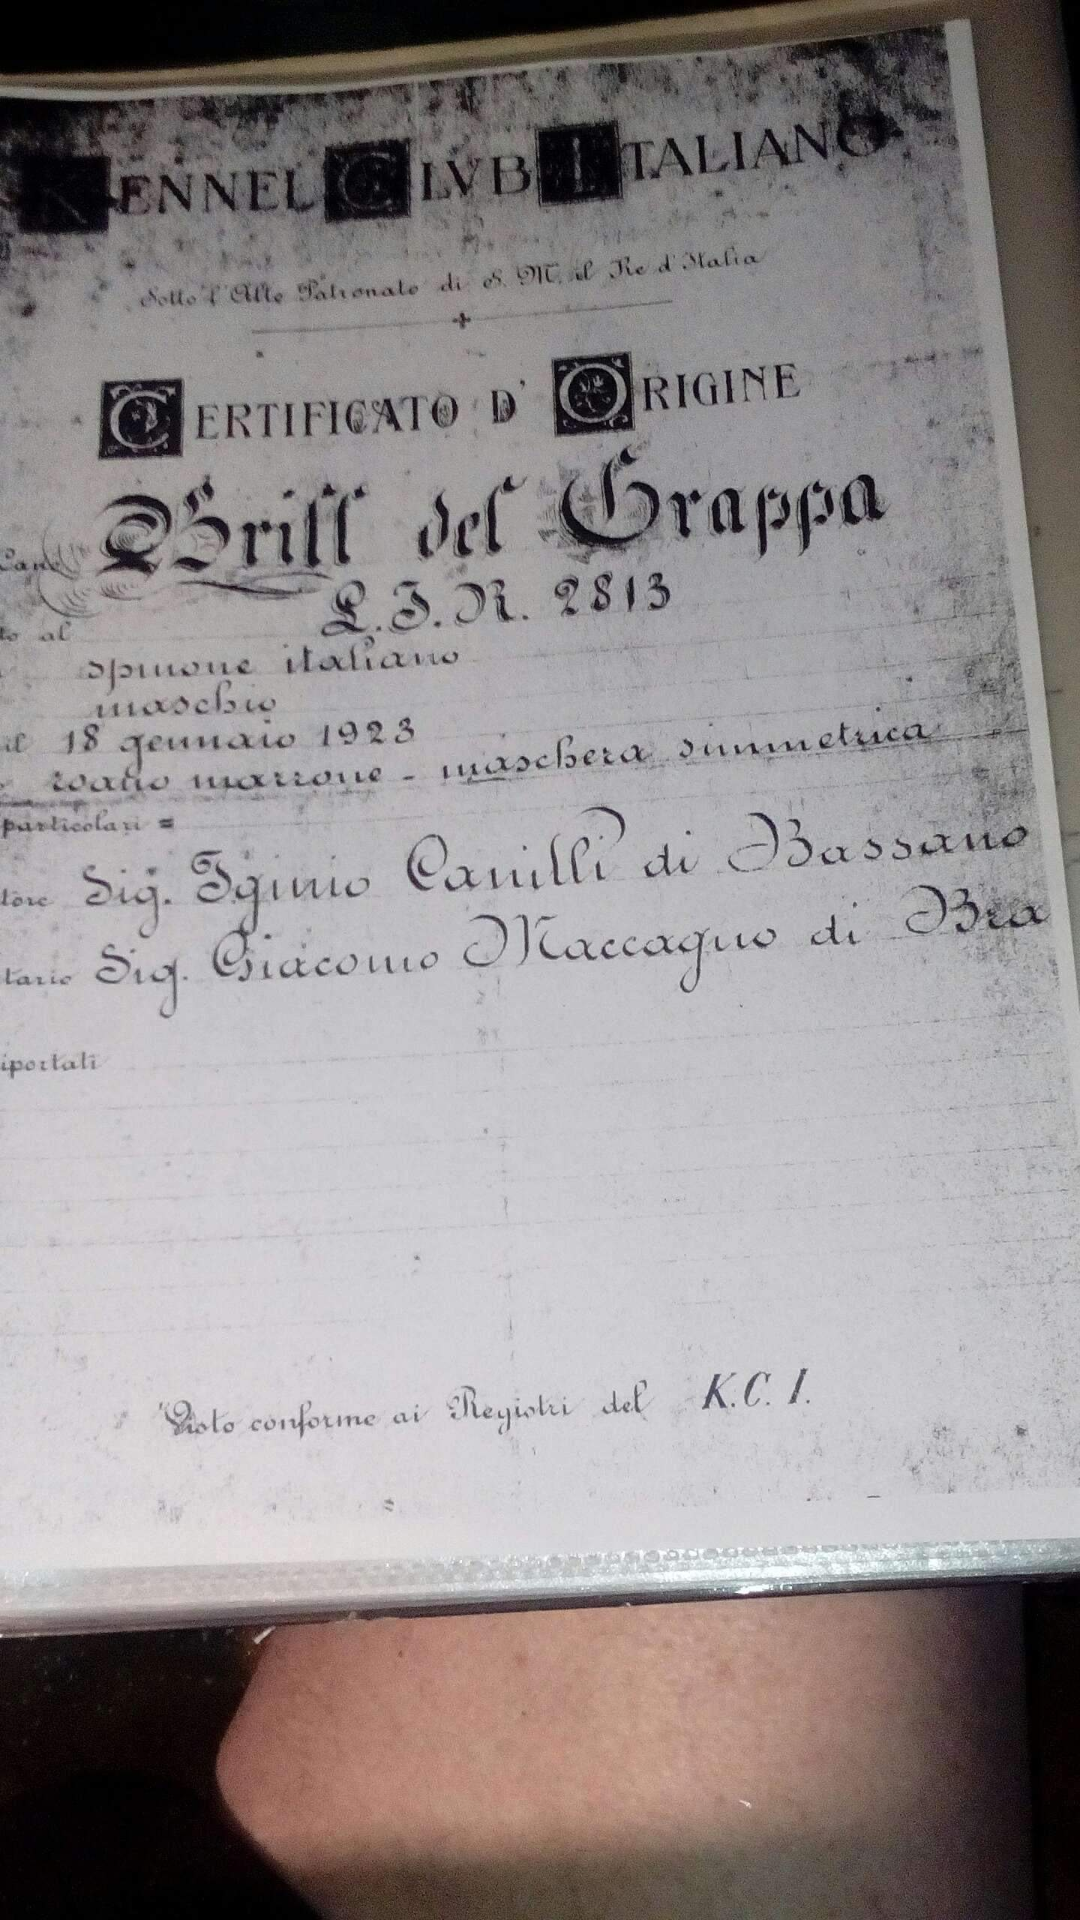 KENNEL CLVB ITALIANO
Sotto l'Alto Patronato di S. M. il Re d'Italia
CERTIFICATO D'ORIGINE
Cane Brill del Grappa
to al L.I.R. 2813
spinone italiano
maschio
il 18 gennaio 1923
roano marrone - maschera simmetrica
particolari =
tore Sig. Iginio Canilli di Bassano
tario Sig. Giacomo Maccagno di Bra
iportati
Visto conforme ai Registri del K.C.I.